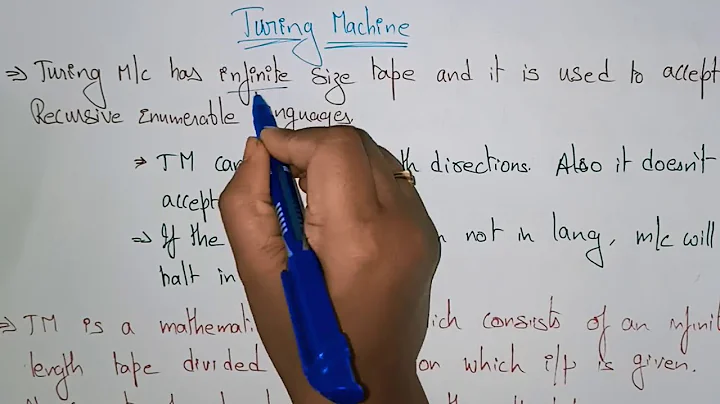 Turing Machine
⇒ Turing M/c has infinite size tape and it is used to accept
Recursive Enumerable Languages
⇒ TM can directions. Also it doesn't
accept
⇒ If the not in lang, m/c will
halt in
⇒ TM is a mathemati which consists of an infinit
length tape divided on which i/p is given.